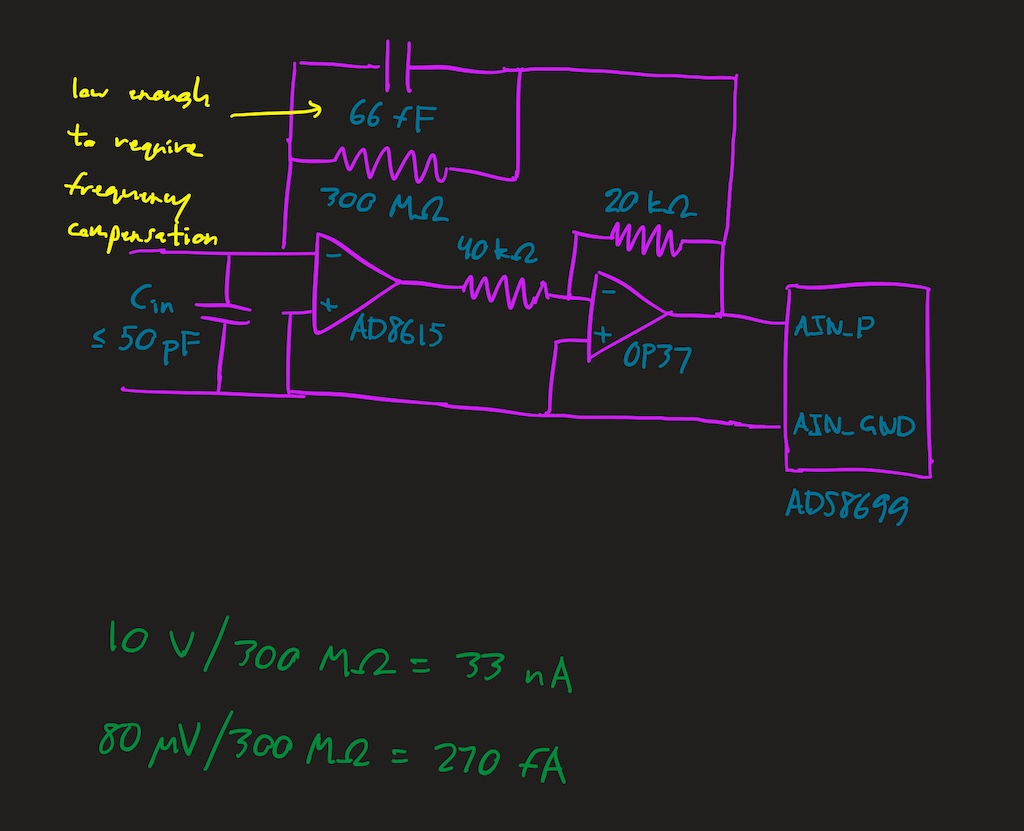 low enough
to require
frequency
compensation
66 fF
300 MΩ
20 kΩ
40 kΩ
Cin
≤ 50 pF
-
+
AD8615
-
+
OP37
AIN_P
AIN_GND
ADS8699
10 V/300 MΩ = 33 nA
80 μV/300 MΩ = 270 fA